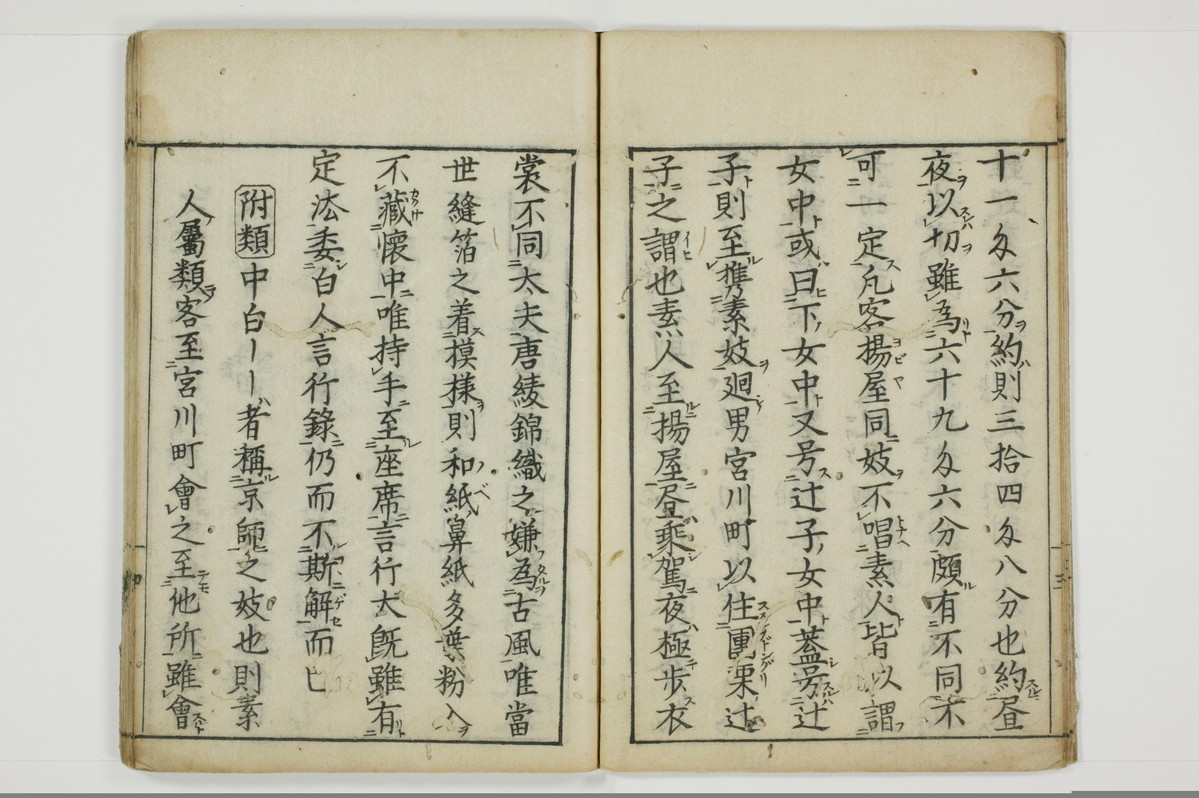 十一匁六分約則三拾四匁八分也約昼
夜以切雖為六十九匁六分頗有不同不
可一定凡客揚屋同妓不唱素人皆以謂
女中或曰下女中又号辻子女中蓋号辻
子則至携素妓廻男宮川町以住團栗辻
子之謂也素人至揚屋昼乘駕夜極歩衣
裳不同太夫唐綾錦織之嫌為古風唯當
世縫箔之着摸様則和紙鼻紙多葉粉入
不藏懷中唯持手至座席言行大既雖有
定法委白人言行錄仍而不斯解而已
附類中白ーー者稱京師之妓也則素
人屬類客至宮川町會之至他所雖會